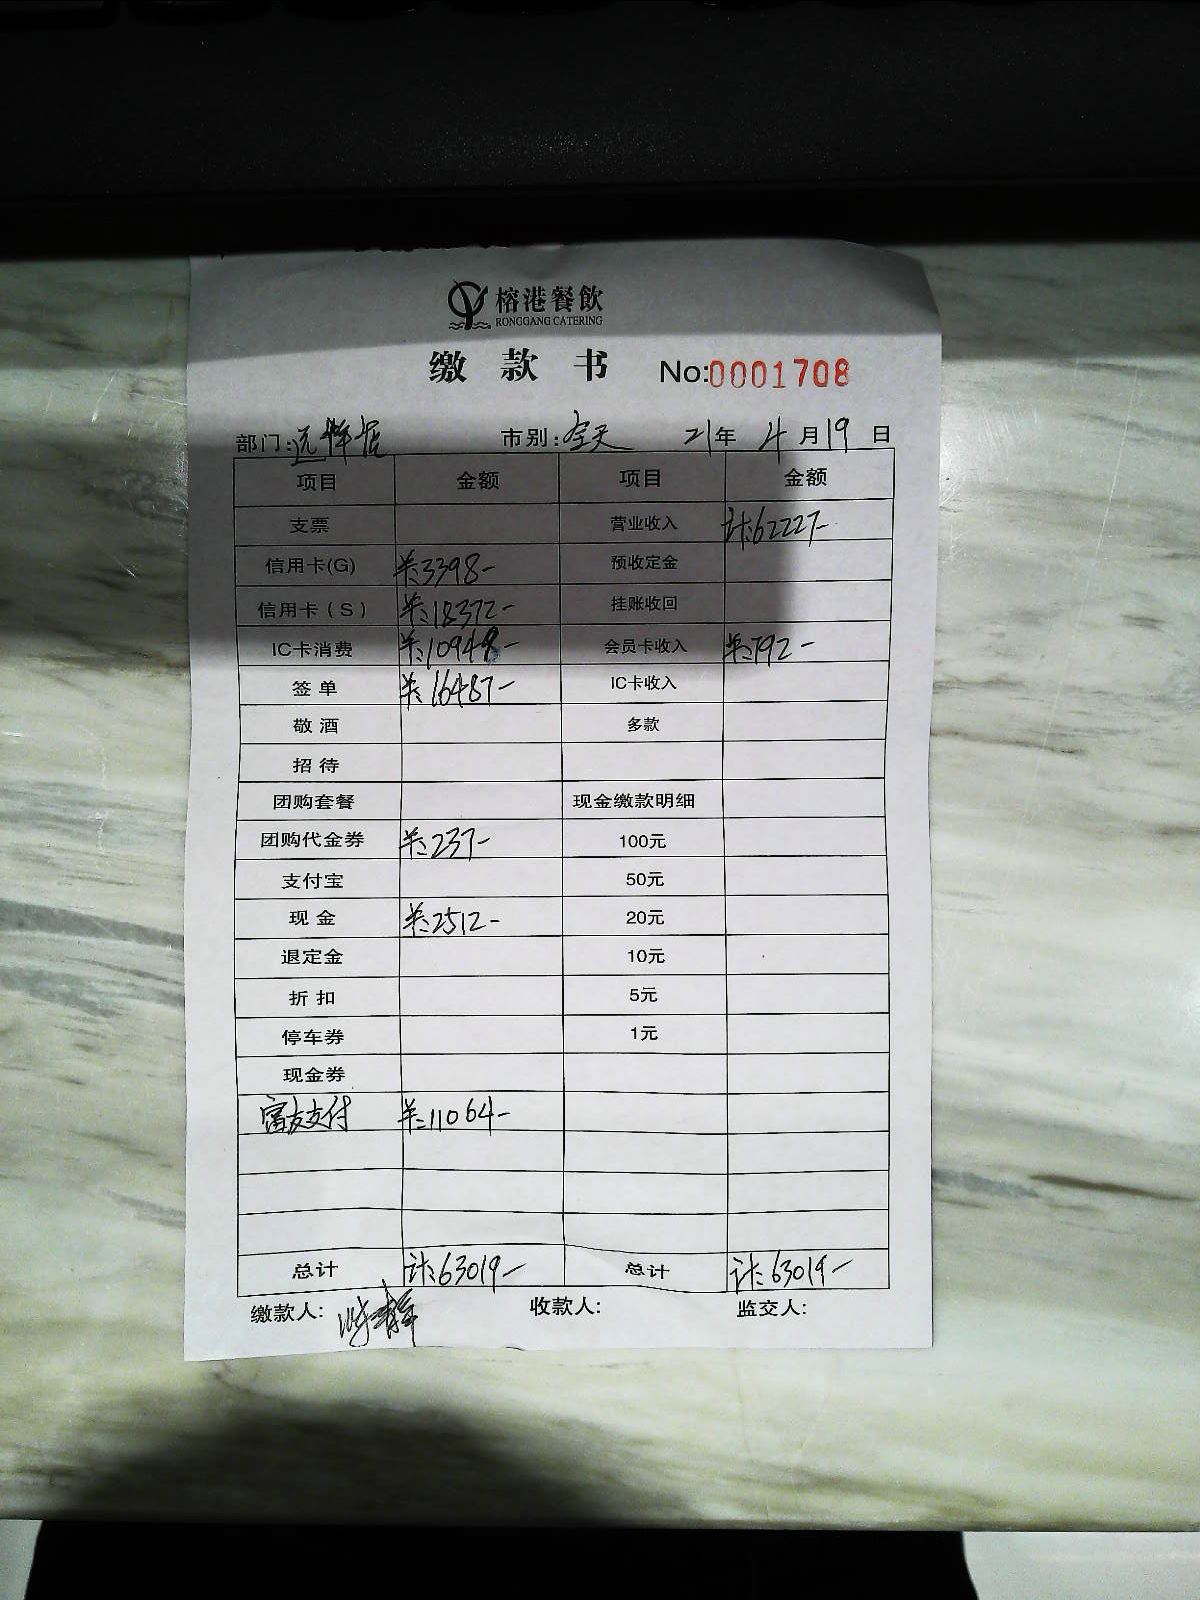 榕港餐飲
RONGGANG CATERING
缴款书 No:0001708
部门:远洋店 市别:全天 21年4月19日
项目 金额 项目 金额
支票 营业收入 计:62227-
信用卡(G) 单:3398- 预收定金
信用卡(S) 单:18372- 挂账收回
IC卡消费 单:10949- 会员卡收入 单:792-
签单 单:16487- IC卡收入
敬酒 多款
招待
团购套餐 现金缴款明细
团购代金券 单:237- 100元
支付宝 50元
现金 单:2512- 20元
退定金 10元
折扣 5元
停车券 1元
现金券
富友支付 单:11064-
总计 计:63019- 总计 计:63019-
缴款人: 收款人: 监交人: